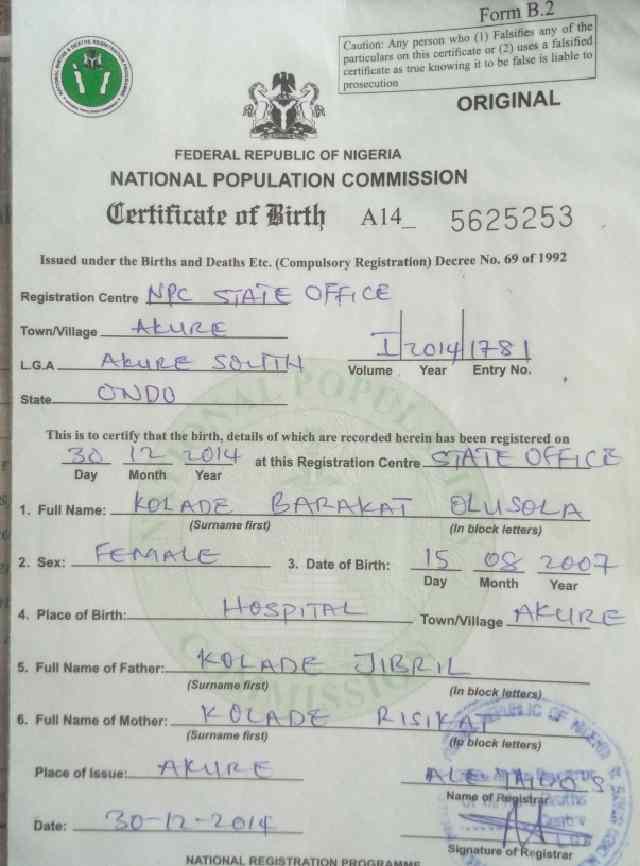 Form B.2
Caution: Any person who (1) Falsifies any of the
particulars on this certificate or (2) uses a falsified
certificate as true knowing it to be false is liable to
prosecution
ORIGINAL
FEDERAL REPUBLIC OF NIGERIA
NATIONAL POPULATION COMMISSION
Certificate of Birth A14_ 5625253
Issued under the Births and Deaths Etc. (Compulsory Registration) Decree No. 69 of 1992
Registration Centre NPC STATE OFFICE
Town/Village AKURE
L.G.A AKURE SOUTH
I 2014 1781
Volume Year Entry No.
State ONDO
This is to certify that the birth, details of which are recorded herein has been registered on
30 12 2014 at this Registration Centre STATE OFFICE
Day Month Year
1. Full Name: KOLADE BARAKAT OLUSOLA
(Surname first) (In block letters)
2. Sex: FEMALE 3. Date of Birth: 15 08 2007
Day Month Year
4. Place of Birth: HOSPITAL Town/Village AKURE
5. Full Name of Father: KOLADE JIBRIL
(Surname first) (In block letters)
6. Full Name of Mother: KOLADE RISIKAT
(Surname first) (In block letters)
Place of Issue: AKURE
Name of Registrar
Date: 30-12-2014
Signature of Registrar
NATIONAL REGISTRATION PROGRAMME